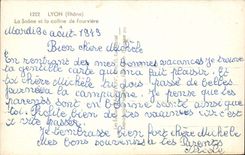 1222 LYON (Rhône)
La Saône et la colline de Fourvière
Mardi 30 août 1949
Bien chère Michèle
En rentrant des mes bonnes vacances je trouve
ta gentille carte qui m'a fait plaisir. Et
toi chère Michèle as tu passé de belles
journées à la campagne. Je pense que tes
parents sont en bonne santé ainsi que
toi. Profite bien de tes vacances car c'est
si vite passé.
Je t'embrasse bien fort chère Michèle
Mes bons souvenirs à tes Parents